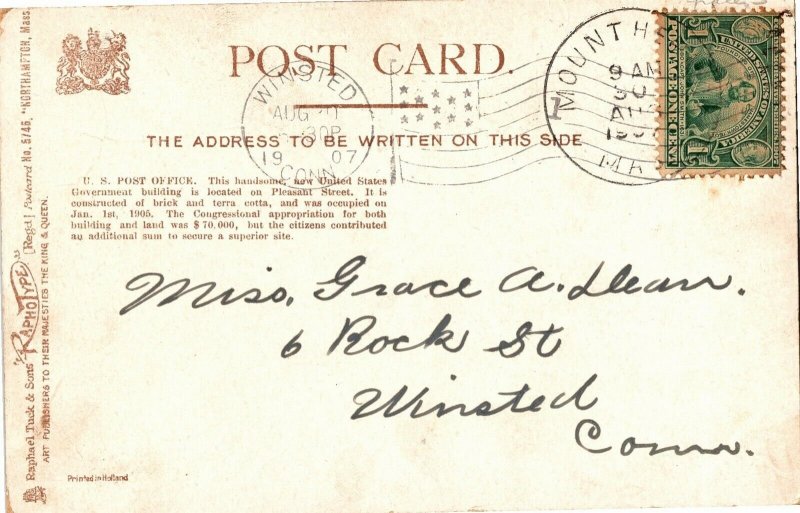 POST CARD.
THE ADDRESS TO BE WRITTEN ON THIS SIDE
WINSTED
AUG
30P
19 07
CONN
MOUNT H
9 AM
30
190
1 UNITED STATES OF AMERICA 1
U. S. POST OFFICE. This handsome, new United States
Government building is located on Pleasant Street. It is
constructed of brick and terra cotta, and was occupied on
Jan. 1st, 1905. The Congressional appropriation for both
building and land was $70,000, but the citizens contributed
an additional sum to secure a superior site.
Miss. Grace A. Dean.
6 Rock St
Winsted
Conn.
Raphael Tuck & Sons' "RAPHOTYPE" [Regd] Postcard No. 5745, "NORTHAMPTON, Mass.
ART PUBLISHERS TO THEIR MAJESTIES THE KING & QUEEN.
Printed in Holland